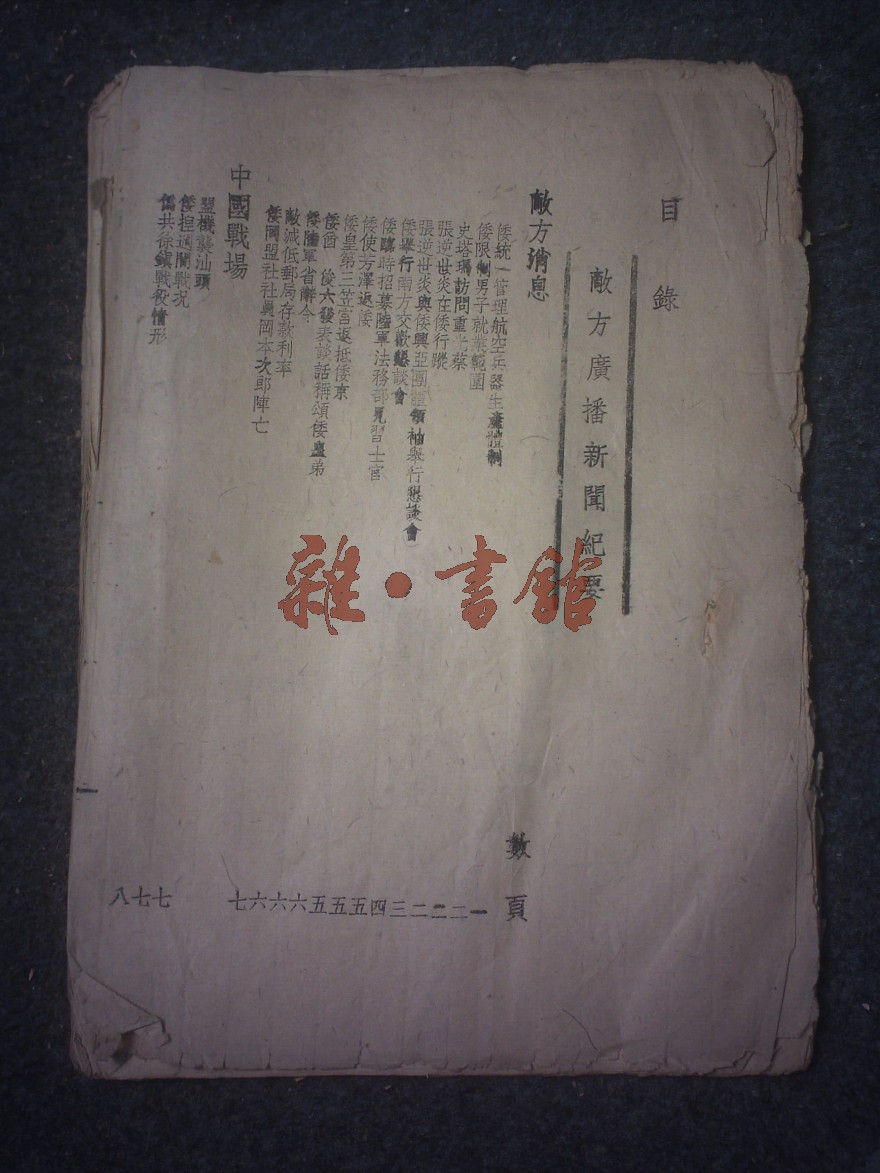 目錄
敵方廣播新聞紀要
敵方消息
數頁
倭統一管理航空兵器生產體制
倭限制男子就業範圍
史塔瑪訪問重光葵
張逆世炎在倭行蹤
張逆世炎與倭興亞團體領袖舉行懇談會
倭舉行南方交歡懇談會
倭臨時招募陸軍法務部見習士官
倭使芳澤返倭
倭皇第三笠宮返抵倭京
倭酋 後六發表談話稱頌倭皇弟
倭陸軍省辭令
敵減低郵局存款利率
倭同盟社社員岡本次郎陣亡
一二二二三四五五五六六六七
中國戰場
盟機襲汕頭
倭揑過閩戰況
僞共徐鎮戰役情形
七七八
雜·書館